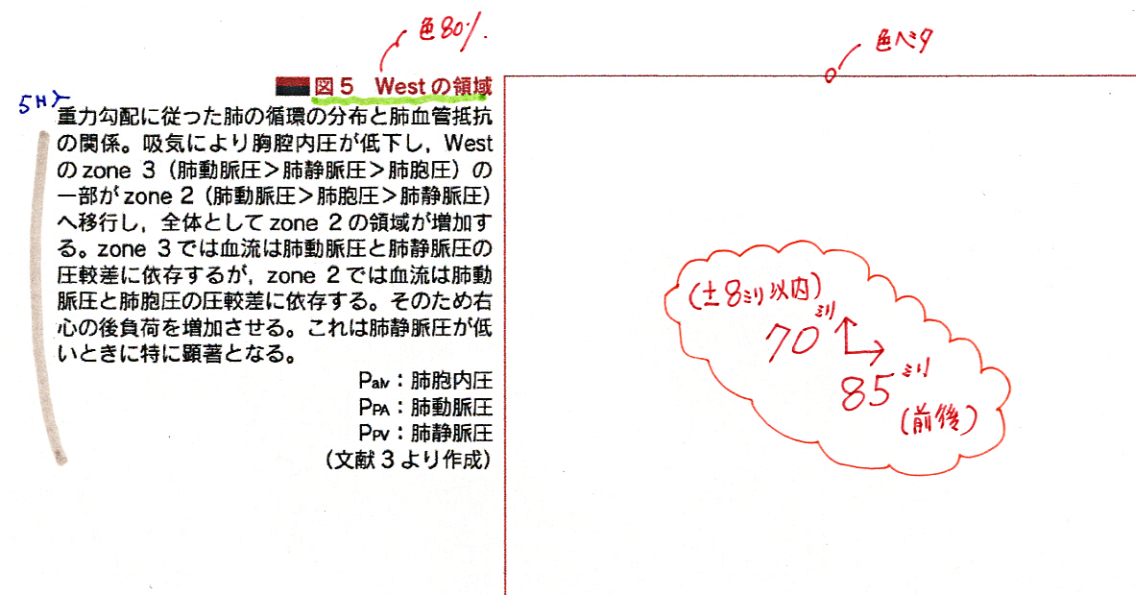 色80%.
色ベタ
図5 Westの領域
5H
重力勾配に従った肺の循環の分布と肺血管抵抗
の関係。吸気により胸腔内圧が低下し，West
のzone 3（肺動脈圧＞肺静脈圧＞肺胞圧）の
一部がzone 2（肺動脈圧＞肺胞圧＞肺静脈圧）
へ移行し，全体としてzone 2の領域が増加す
る。zone 3では血流は肺動脈圧と肺静脈圧の
圧較差に依存するが，zone 2では血流は肺動
脈圧と肺胞圧の圧較差に依存する。そのため右
心の後負荷を増加させる。これは肺静脈圧が低
いときに特に顕著となる。
Palv：肺胞内圧
PPA：肺動脈圧
PPV：肺静脈圧
（文献3より作成）
(±8ミリ以内)
70ミリ
85ミリ
(前後)